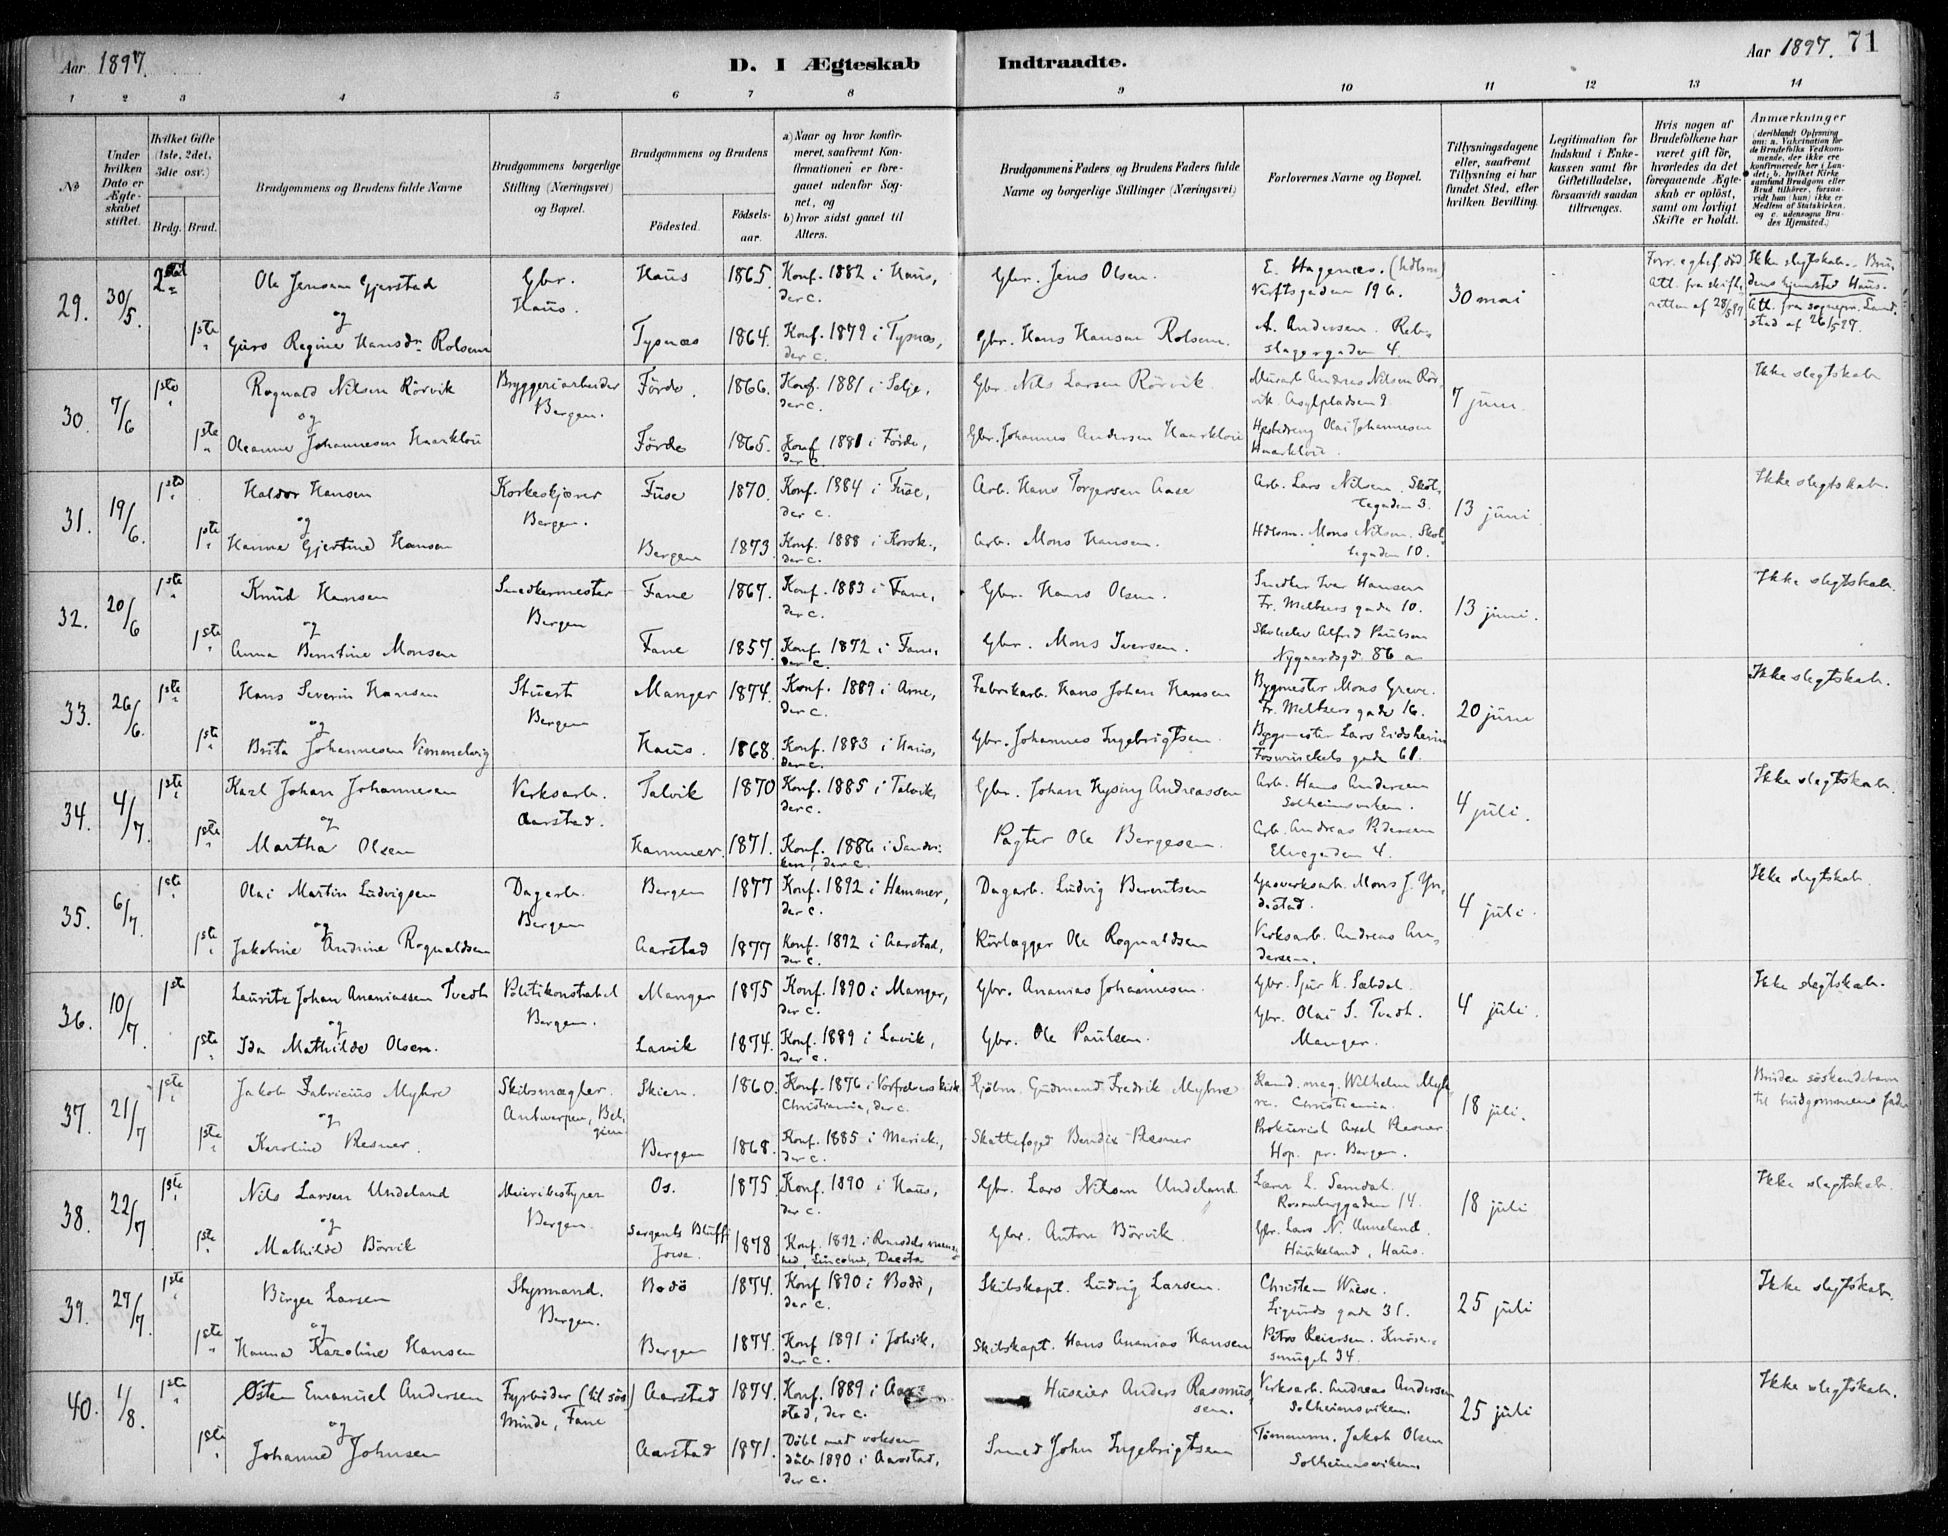 Aar 1897.
D. I Ægteskab
Indtraadte.
Aar 1897. 71
1 2 3 4 5 6 7 8 9 10 11 12 13 14
№
Under hvilken Dato er Ægteskabet stiftet.
Hvilket Gifte (1ste, 2det, 3die osv.)
Brdg. Brud.
Brudgommens og Brudens fulde Navne
Brudgommens borgerlige Stilling (Næringsvei) og Bopæl.
Brudgommens og Brudens
Födested.
Födselsaar.
a) Naar og hvor konfirmeret, saafremt Konfirmationen er foregaaet udenför Sognet, og
b) hvor sidst gaaet til Alters.
Brudgommens Faders og Brudens Faders fulde Navne og borgerlige Stillinger (Næringsvei)
Forlovernes Navne og Bopæl.
Tillysningsdagene eller, saafremt Tillysning ei har fundet Sted, efter hvilken Bevilling.
Legitimation for Indskud i Enkekassen samt for Giftetilladelse, forsaavidt saadan tiltrænges.
Hvis nogen af Brudefolkene har været gift för, hvorledes da det foregaaende Ægteskab er oplöst, samt om lovligt Skifte er holdt.
Anmærkninger
(deriblandt Oplysning om: a. Vakcination for de Brudefolks Vedkommende, der ikke ere konfirmerede her i Landet; b. hvilket Kirkesamfund Brudgom eller Brud tilhörer, forsaavidt han (hun) ikke er Medlem af Statskirken, og c. udensogns Brudes Hjemsted.)
29. 30/5. 2det Ole Jensen Gjerstad Gbr. Haus 1865. Konf. 1882 i Haus, Gbr. Jens Olsen. E. Hagenæs. (hdlsm)
og Haus. der c. Verftsgaden 19 b. 30 mai
1ste Guro Regine Hansdr. Rolsem Tysnæs 1864. Konf. 1879 i Tysnæs, Gbr. Hans Hansen Rolsem. A. Andersen. Reb-
der c. slagergaden 4.
Forr. egtef. död. Att. fra skifteretten af 28/5 97
Ikke slegtskab. Brudens hjemsted Haus. Att. fra sognepr. Landstad af 26/5 97.
30. 7/6 1ste Rognald Nilsen Rörvik Bryggeriarbeider Förde. 1866. Konf. 1881 i Selje, Gbr. Nils Larsen Rörvik Murarb. Andreas Nilsen Rör- Ikke slegtskab
og Bergen. der c. vik. Asylpladsen 9 7 juni.
1ste Oleanna Johannesen Haarklou Förde 1865. Konf. 1881 i Förde, Gbr. Johannes Andersen Haarklou Hestedreng Olai Johannesen
der c. Haarklou.
31. 19/6. 1ste Haldor Hansen Korkeskjærer Fuse 1870. Konf. 1884 i Fuse, Arb. Hans Torgersen Aase Arb. Lars Nilsen. Skot- Ikke slegtskab.
og Bergen. der c. tegaden 3. 13 juni
1ste Hanna Gjertine Hansen Bergen 1873. Konf. 1888 i Korsk., Arb. Mons Hansen. Hdlsm. Mons Nilsen. Skot-
der c. tegaden 10.
32. 20/6 1ste Knud Hansen Snedkermester Fane 1867. Konf. 1883 i Fane, Gbr. Hans Olsen. Snedker Iver Hansen Ikke slegtskab.
og Bergen der c. Fr. Meltzers gade 10. 13 juni.
1ste Anna Berntine Monsen Fane 1857. Konf. 1872 i Fane, Gbr. Mons Iversen. Alfred Paulsen
der c. Nygaardsgd. 86 a
33. 26/6. 1ste Hans Severin Hansen Stuert Manger 1874. Konf. 1889 i Arne, Fabrikarb. Hans Johan Hansen Bygmester Mons Greve. Ikke slegtskab.
og Bergen der c. Fr. Meltzers gade 16. 20 juni
1ste Brita Johannesen Vimmelvig Haus. 1868. Konf. 1883 i Haus, Gbr. Johannes Ingebrigtsen. Bygmester Lars Eidsheim
der c. Foswinckels gade 61.
34. 4/7. 1ste Karl Johan Johannesen Verksarb. Talvik 1870 Konf. 1885 i Talvik, Gbr. Johan Hysing Andreassen Arb. Hans Andersen Ikke slegtskab.
og Aarstad. der c. Solheimsviken. 4 juli.
1ste Martha Olsen Hammer. 1871. Konf. 1886 i Sandvi- Pagter Ole Bergesen. Arb. Andreas Pedersen
ken, der c. Elvegaden 4.
35. 6/7. 1ste Olai Martin Ludvigsen Dagarb. Bergen 1877 Konf. 1892 i Hammer, Dagarb. Ludvig Berentsen Gasverksarb. Mons J. Yn- Ikke slegtskab.
og Bergen der c. destad. 4 juli.
1ste Jakobine Andrine Rognaldsen Aarstad 1877 Konf. 1892 i Aarstad, Rörlægger Ole Rognaldsen Verksarb. Andreas An-
der c. dersen.
36. 10/7. 1ste Lauritz Johan Ananiassen Tvedt Politikonstabel Manger 1875 Konf. 1890 i Manger, Gbr. Ananias Johannesen. Gbr. Sjur K. Sæbdal. Ikke slegtskab.
og Bergen. der c. Gbr. Olai S. Tvedt. 4 juli.
1ste Ida Mathilde Olsen. Lavik 1874. Konf. 1889 i Lavik, Gbr. Ole Paulsen. Manger.
der c.
37. 21/7 1ste Jakob Fabricius Myhre Skibsmægler. Skien. 1860. Konf. 1876 i Vorfrelsers kirke Kjöbm. Gudmand Fredrik Myhre Kand. mag. Wilhelm Myh- Bruden söskendebarn
og Antwerpen, Bel- Christiania, der c. re. Christiania. 18 juli. til brudgommens fader
1ste Karoline Resner. gien Bergen 1868. Konf. 1885 i Mariek., Skattefoged Bendix Resner Prokurist Axel Resner
der c. Hop. pr. Bergen.
38. 22/7. 1ste Nils Larsen Undeland Meieribestyrer Os. 1875 Konf. 1890 i Haus, Gbr. Lars Nilsen Undeland. Lærer L. Samdal. Ikke slegtskab.
og Bergen. der c. Rosenberggaden 14. 18 juli
1ste Mathilde Börvik Sargents Bluff Jowa. 1878 Konf. 1892 i Romsdals menig- Gbr. Anton Börvik. Gbr. Lars N. Unneland.
hed, Lincoln, Dacota Haukeland, Haus.
39. 27/7. 1ste Birger Larsen Styrmand. Bodö 1874. Konf 1890 i Bodö, Skibskapt. Ludvig Larsen. Christen Wiese. Ikke slegtskab.
og Bergen. der c. Sigurds gade 31. 25 juli
1ste Hanna Karoline Hansen Bergen 1874. Konf 1891 i Johsk., Skibskapt. Hans Ananias Hansen Petra Reiersen. Knöse-
der c. smuget 34.
40. 1/8. 1ste Østen Emanuel Andersen Fyrböder (til sös) Aarstad 1874. Konf. 1889 i Aar- Huseier Anders Rasmus- Verksarb. Andreas Andersen Ikke slegtskab.
og Minde, Fane stad, der c. sen. Solheimsviken. 25 juli
1ste Johanne Johnsen Aarstad 1871. Döbt med voksen Smed John Ingebrigtsen Tömmerm. Jakob Olsen
daab 1890 i Aarstad, Solheimsviken.
der c.